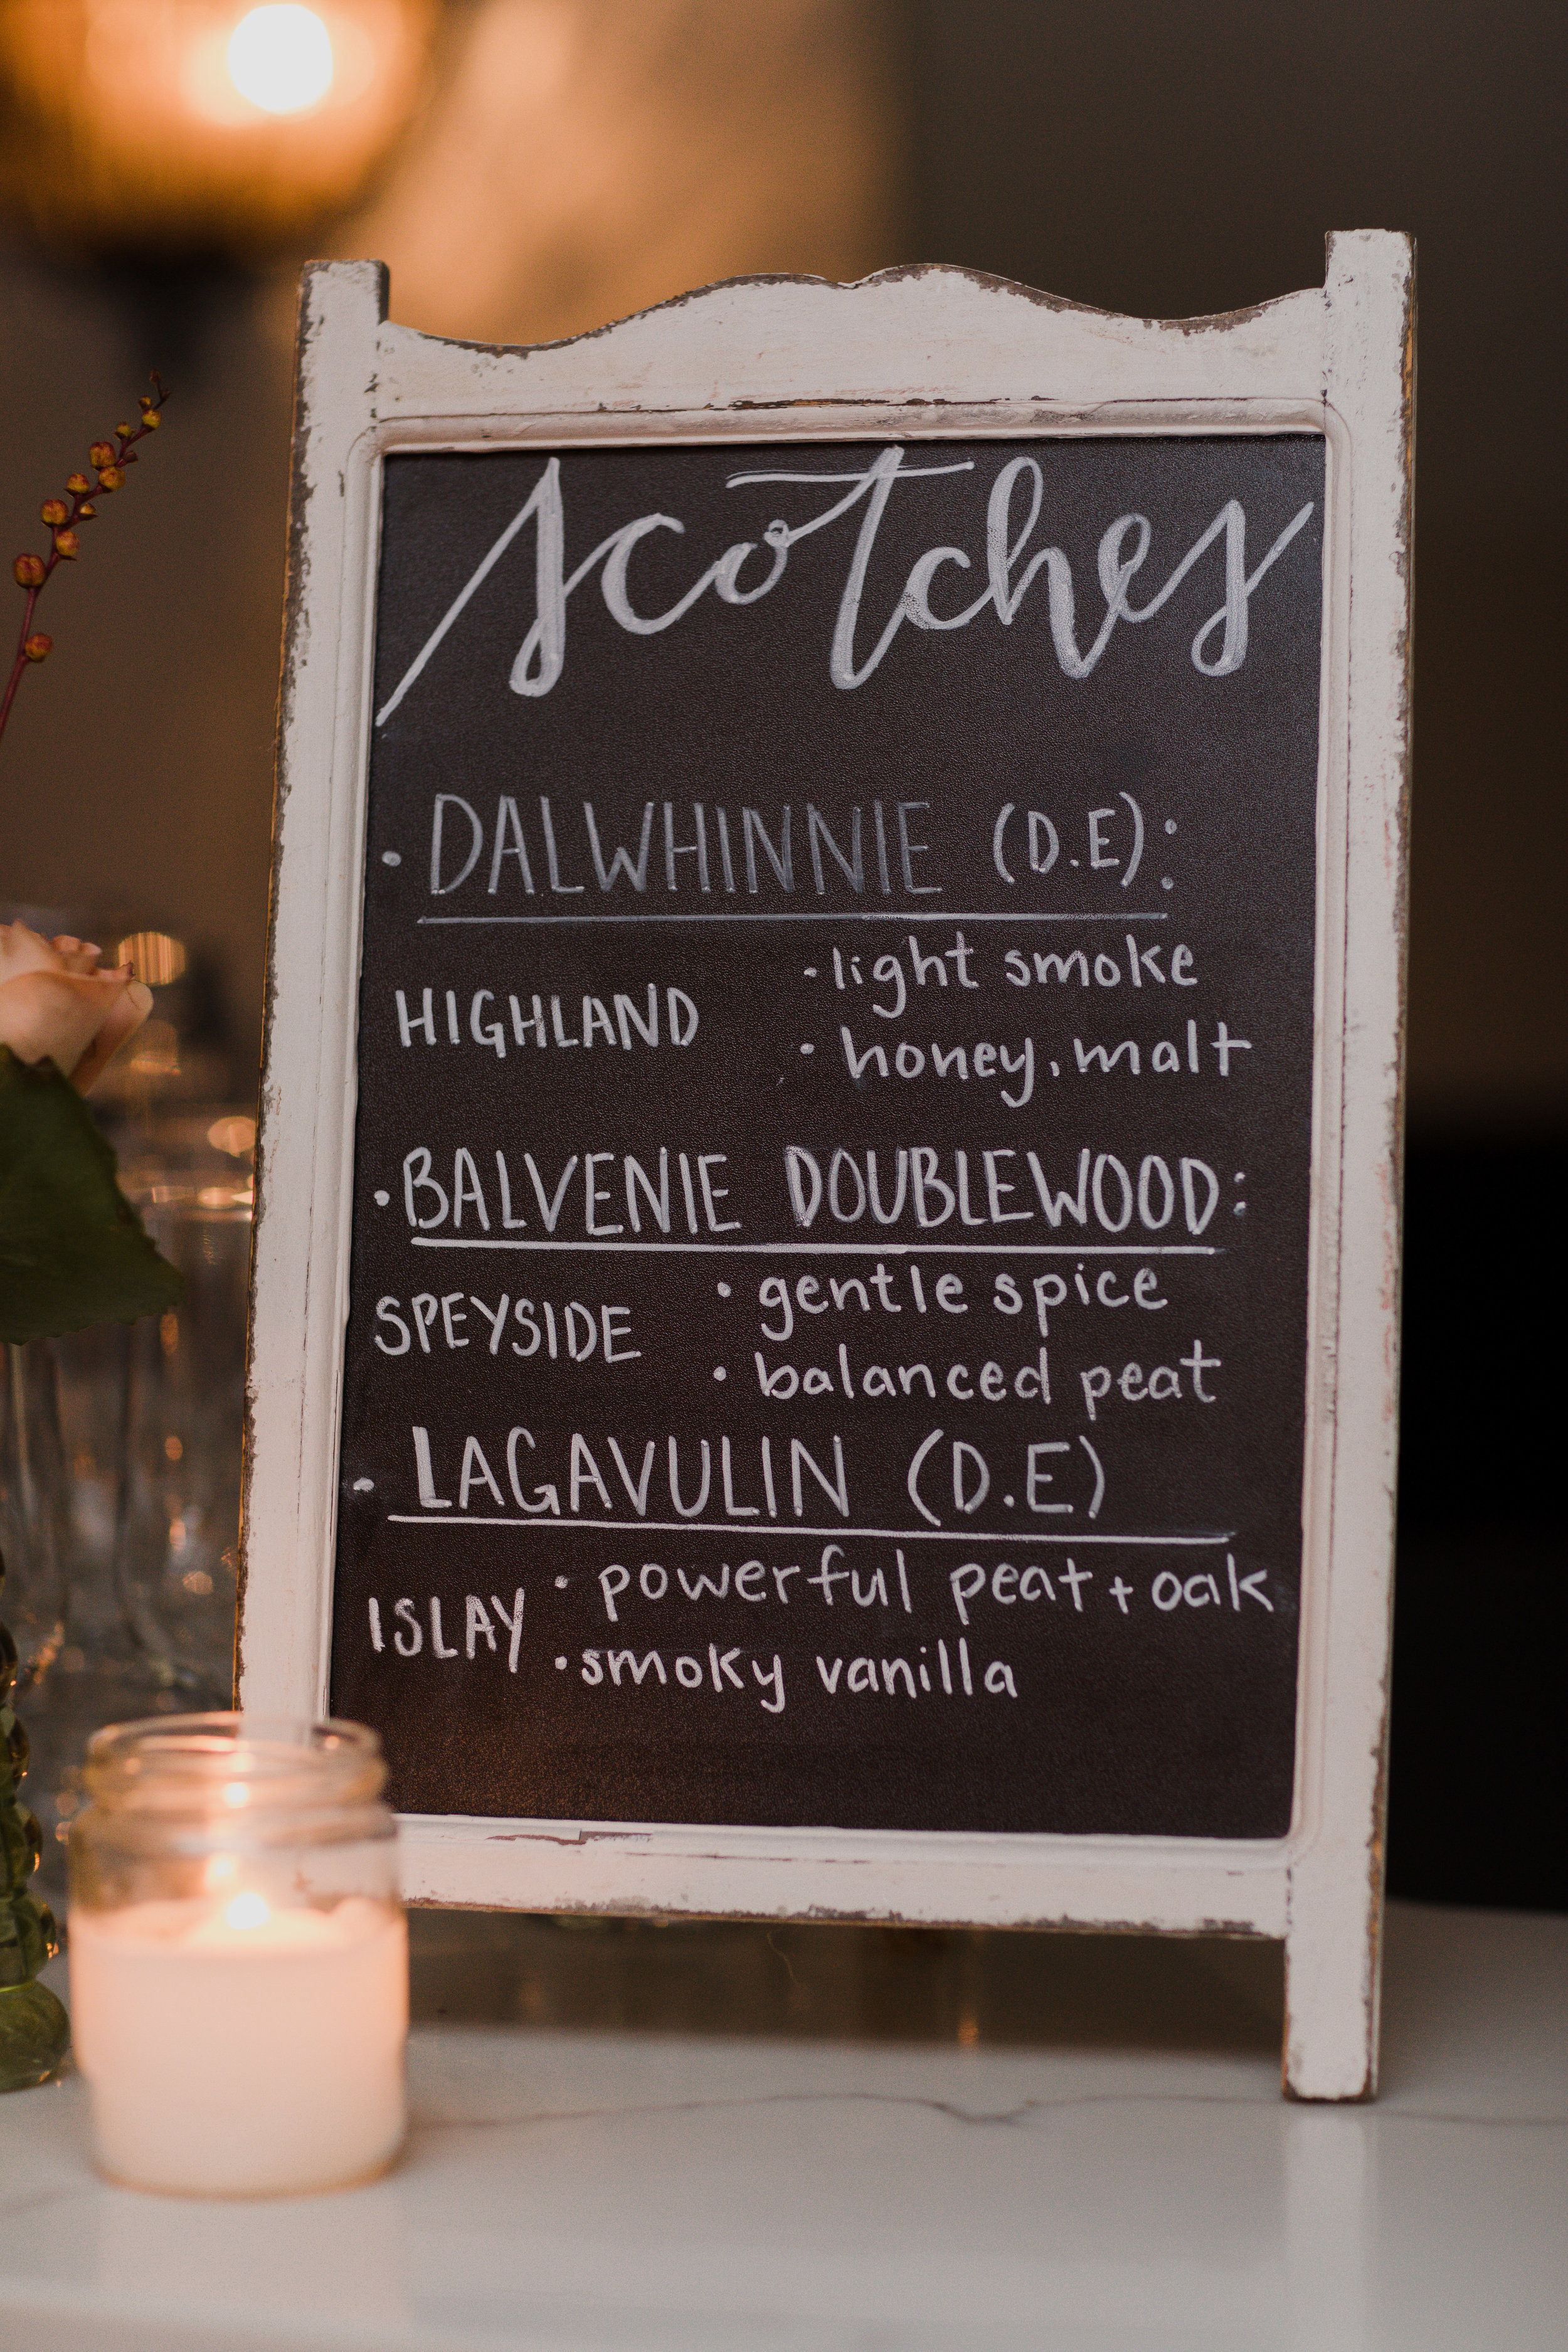 scotches
• DALWHINNIE (D.E):
HIGHLAND
• light smoke
• honey, malt
• BALVENIE DOUBLEWOOD:
SPEYSIDE
• gentle spice
• balanced peat
• LAGAVULIN (D.E)
ISLAY
• powerful peat + oak
• smoky vanilla